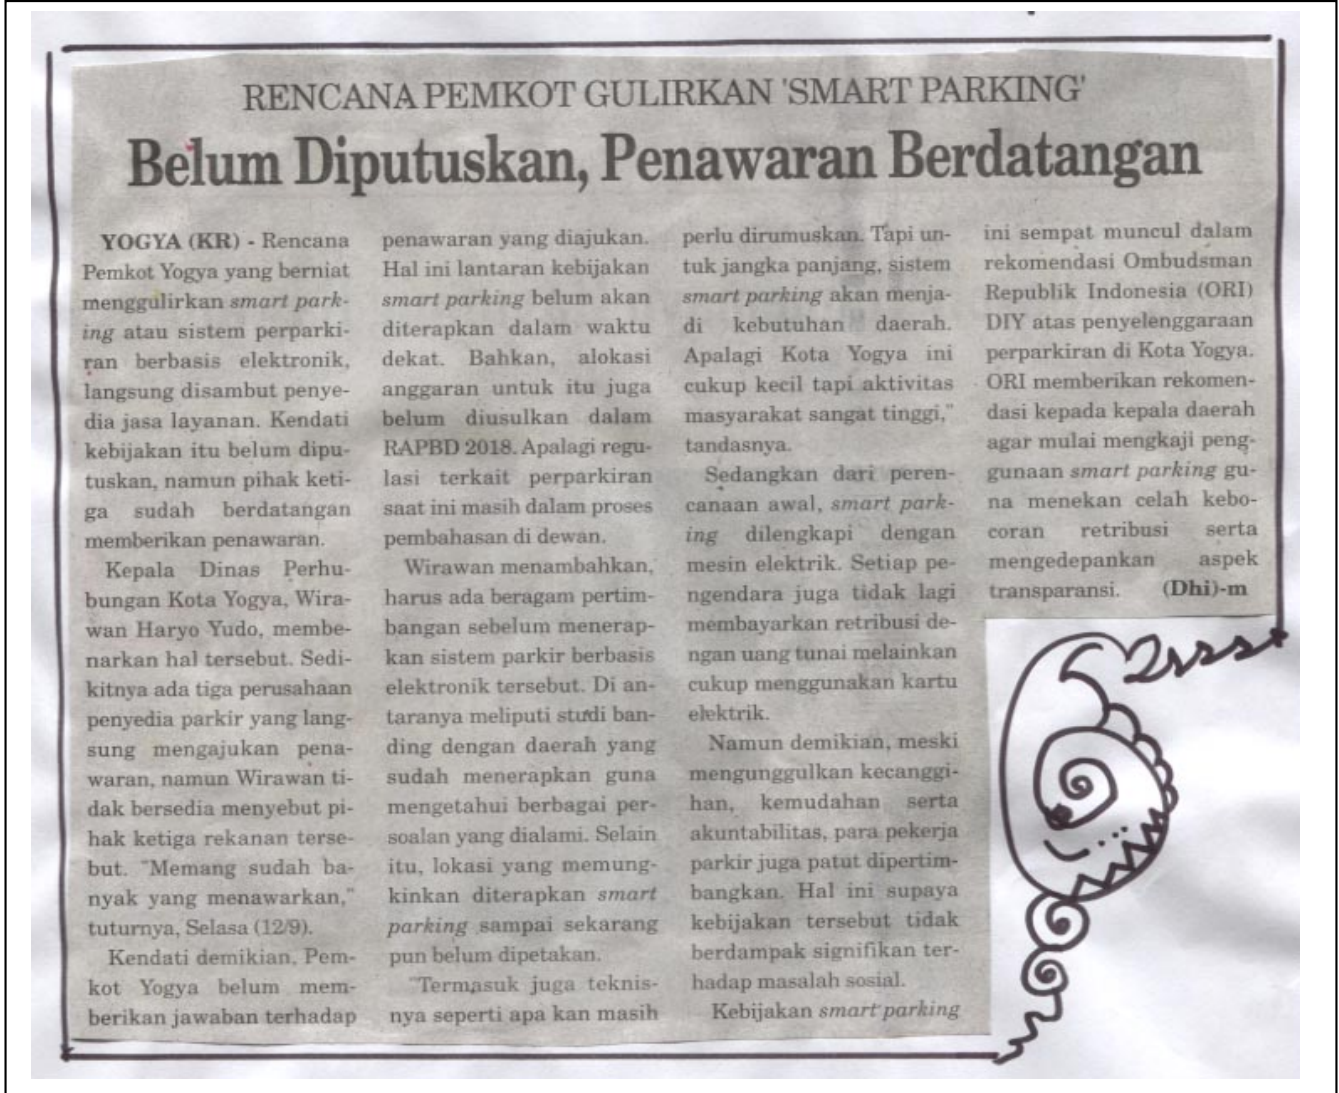 RENCANA PEMKOT GULIRKAN 'SMART PARKING'
Belum Diputuskan, Penawaran Berdatangan
YOGYA (KR) - Rencana
Pemkot Yogya yang berniat
menggulirkan smart park-
ing atau sistem perparki-
ran berbasis elektronik,
langsung disambut penye-
dia jasa layanan. Kendati
kebijakan itu belum dipu-
tuskan, namun pihak keti-
ga sudah berdatangan
memberikan penawaran.
Kepala Dinas Perhu-
bungan Kota Yogya, Wira-
wan Haryo Yudo, membe-
narkan hal tersebut. Sedi-
kitnya ada tiga perusahaan
penyedia parkir yang lang-
sung mengajukan pena-
waran, namun Wirawan ti-
dak bersedia menyebut pi-
hak ketiga rekanan terse-
but. "Memang sudah ba-
nyak yang menawarkan,"
tuturnya, Selasa (12/9).
Kendati demikian, Pem-
kot Yogya belum mem-
berikan jawaban terhadap
penawaran yang diajukan.
Hal ini lantaran kebijakan
smart parking belum akan
diterapkan dalam waktu
dekat. Bahkan, alokasi
anggaran untuk itu juga
belum diusulkan dalam
RAPBD 2018. Apalagi regu-
lasi terkait perparkiran
saat ini masih dalam proses
pembahasan di dewan.
Wirawan menambahkan,
harus ada beragam pertim-
bangan sebelum menerap-
kan sistem parkir berbasis
elektronik tersebut. Di an-
taranya meliputi studi ban-
ding dengan daerah yang
sudah menerapkan guna
mengetahui berbagai per-
soalan yang dialami. Selain
itu, lokasi yang memung-
kinkan diterapkan smart
parking sampai sekarang
pun belum dipetakan.
"Termasuk juga teknis-
nya seperti apa kan masih
perlu dirumuskan. Tapi un-
tuk jangka panjang, sistem
smart parking akan menja-
di kebutuhan daerah.
Apalagi Kota Yogya ini
cukup kecil tapi aktivitas
masyarakat sangat tinggi,"
tandasnya.
Sedangkan dari peren-
canaan awal, smart park-
ing dilengkapi dengan
mesin elektrik. Setiap pe-
ngendara juga tidak lagi
membayarkan retribusi de-
ngan uang tunai melainkan
cukup menggunakan kartu
elektrik.
Namun demikian, meski
mengunggulkan kecanggi-
han, kemudahan serta
akuntabilitas, para pekerja
parkir juga patut dipertim-
bangkan. Hal ini supaya
kebijakan tersebut tidak
berdampak signifikan ter-
hadap masalah sosial.
Kebijakan smart parking
ini sempat muncul dalam
rekomendasi Ombudsman
Republik Indonesia (ORI)
DIY atas penyelenggaraan
perparkiran di Kota Yogya.
ORI memberikan rekomen-
dasi kepada kepala daerah
agar mulai mengkaji peng-
gunaan smart parking gu-
na menekan celah kebo-
coran retribusi serta
mengedepankan aspek
transparansi. (Dhi)-m